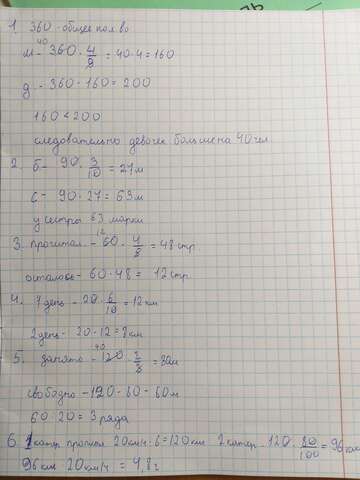 1. 360 - общее кол во
м - 360 · 4/9 = 40 · 4 = 160
40
д - 360 - 160 = 200
160 < 200
следовательно девочек больше на 40 чел
2. б - 90 · 3/10 = 27 м
с - 90 - 27 = 63 м
у сестры 63 марки
3. прочитал - 60 · 4/5 = 48 стр
12
осталось - 60 - 48 = 12 стр
4. 1 день - 20 · 6/10 = 12 км
2 день - 20 - 12 = 8 км
5. занято - 120 · 2/3 = 80 м
40
свободно - 120 - 80 - 60 м
60 : 20 = 3 ряда
6. 1 катер прошол 20 км/ч · 6 = 120 км 2 катер - 120 · 80/100 = 96 км
96 км : 20 км/ч = 4,8 ч